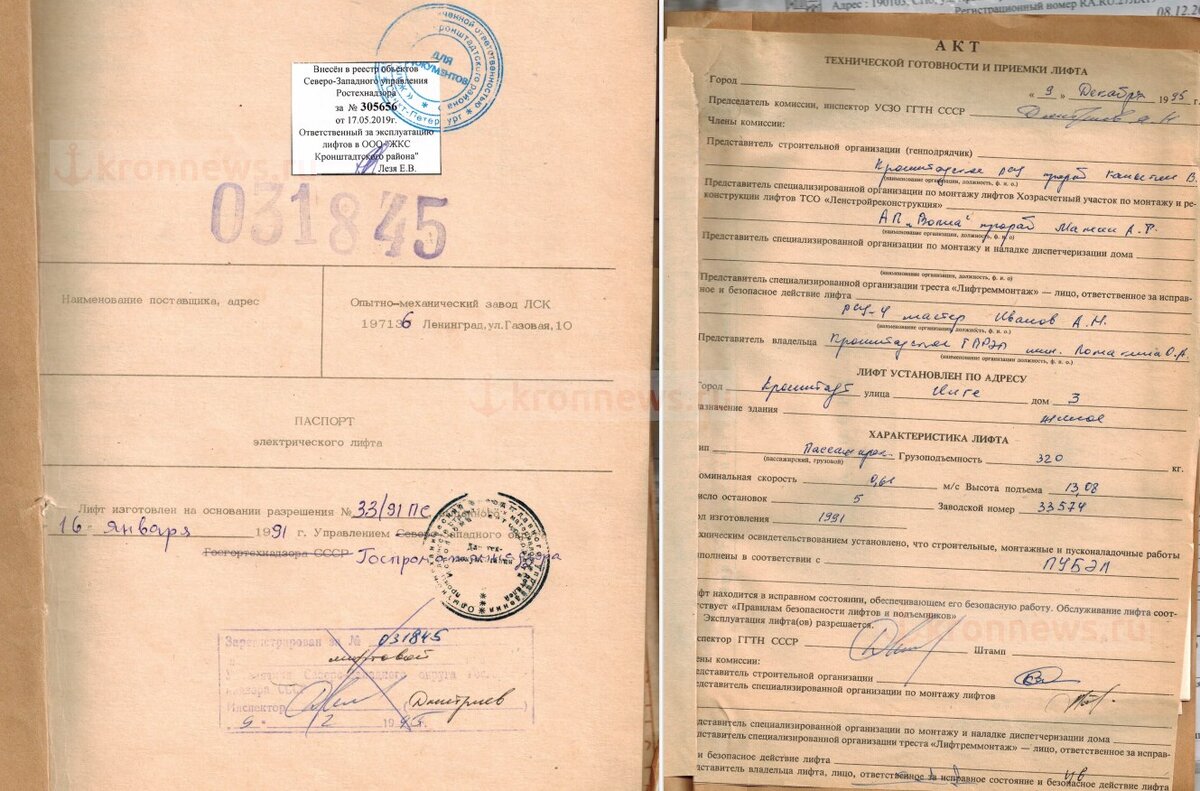 Внесён в реестр объектов
Северо-Западного управления
Ростехнадзора
за № 305656
от 17.05.2019г.
Ответственный за эксплуатацию
лифтов в ООО "ЖКС
Кронштадтского района"
Лезя Е.В.
ДЛЯ
ДОКУМЕНТОВ
kronnews.ru
031845
Наименование поставщика, адрес
Опытно-механический завод ЛСК
197136 Ленинград, ул.Газовая, 10
ПАСПОРТ
электрического лифта
Лифт изготовлен на основании разрешения № 33/91 ПС
16 января 1991 г. Управлением Северо-Западного
Госгортехнадзора СССР
Зарегистрирован за № 031845
лифтовой
Инспектор (Дмитриев)
9. 2 1995г.
Адрес: 190103, СПб, ул.
Регистрационный номер RA.RU.21
08.12.20
АКТ
ТЕХНИЧЕСКОЙ ГОТОВНОСТИ И ПРИЕМКИ ЛИФТА
Город
« 9 » Декабря 1995 г.
Председатель комиссии, инспектор УСЗО ГГТН СССР Дмитриев А Н
Члены комиссии:
Представитель строительной организации (генподрядчик)
Кронштадское рсу прораб В.
(наименование организации, должность, ф. и. о.)
Представитель специализированной организации по монтажу лифтов Хозрасчетный участок по монтажу и ре-
конструкции лифтов ТСО «Ленстройреконструкция»
АП „Волна" прораб Манин А.Ф.
(наименование организации, должность, ф. и. о.)
Представитель специализированной организации по монтажу и наладке диспетчеризации дома
(наименование организации, должность, ф. и. о.)
Представитель специализированной организации треста «Лифтреммонтаж» — лицо, ответственное за исправ-
ное и безопасное действие лифта
рсу-4 мастер Иванов А.Н.
(наименование организации, должность, ф. и. о.)
Представитель владельца Кронштадское ТПРЭО инж. Ломакина О.А.
(наименование организации, должность, ф. и. о.)
ЛИФТ УСТАНОВЛЕН ПО АДРЕСУ
Город Кронштадт улица дом 3
азначение здания жилое
ХАРАКТЕРИСТИКА ЛИФТА
ип Пассажирск. Грузоподъемность 320 кг.
(пассажирский, грузовой)
оминальная скорость м/с Высота подъема 13,08
исло остановок 5 Заводской номер 33574
од изготовления 1991
хническим освидетельствованием установлено, что строительные, монтажные и пусконаладочные работы
полнены в соответствии с ПУБЭЛ
фт находится в исправном состоянии, обеспечивающем его безопасную работу. Обслуживание лифта соот-
тствует «Правилам безопасности лифтов и подъемников»
Эксплуатация лифта(ов) разрешается.
спектор ГГТН СССР Штамп
ены комиссии:
едставитель строительной организации
едставитель специализированной организации по монтажу лифтов
едставитель специализированной организации по монтажу и наладке диспетчеризации дома
едставитель специализированной организации треста «Лифтреммонтаж» — лицо, ответственное за исправ-
и безопасное действие лифта
дставитель владельца лифта, лицо, ответственное за исправное состояние и безопасное действие лифта